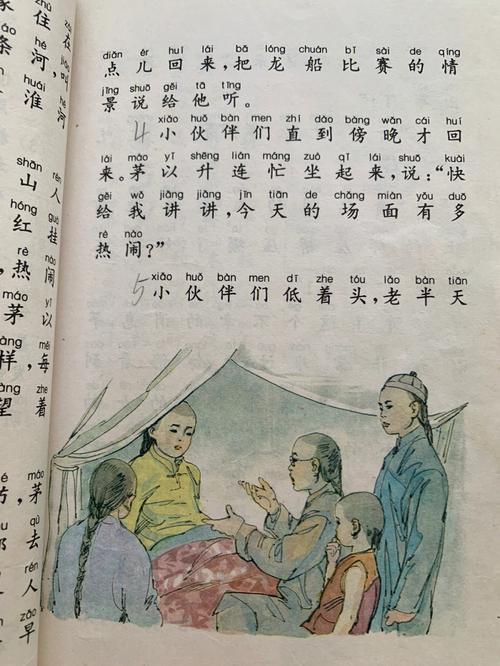 在
家住
,叫
条河
淮河
山人
红挂
,热闹
茅以
样,每
望着
,茅
去
人
早
diǎn ér huí lái bǎ lóng chuán bǐ sài de qíng
点儿回来,把龙船比赛的情
jǐng shuō gěi tā tīng
景说给他听。
xiǎo huǒ bàn men zhí dào bàng wǎn cái huí
4 小伙伴们直到傍晚才回
lái máo yǐ shēng lián máng zuò qǐ lái shuō kuài
来。茅以升连忙坐起来,说:“快
gěi wǒ jiǎng jiǎng jīn tiān de chǎng miàn yǒu duō
给我讲讲,今天的场面有多
rè nào
热闹?”
xiǎo huǒ bàn men dī zhe tóu lǎo bàn tiān
5 小伙伴们低着头,老半天